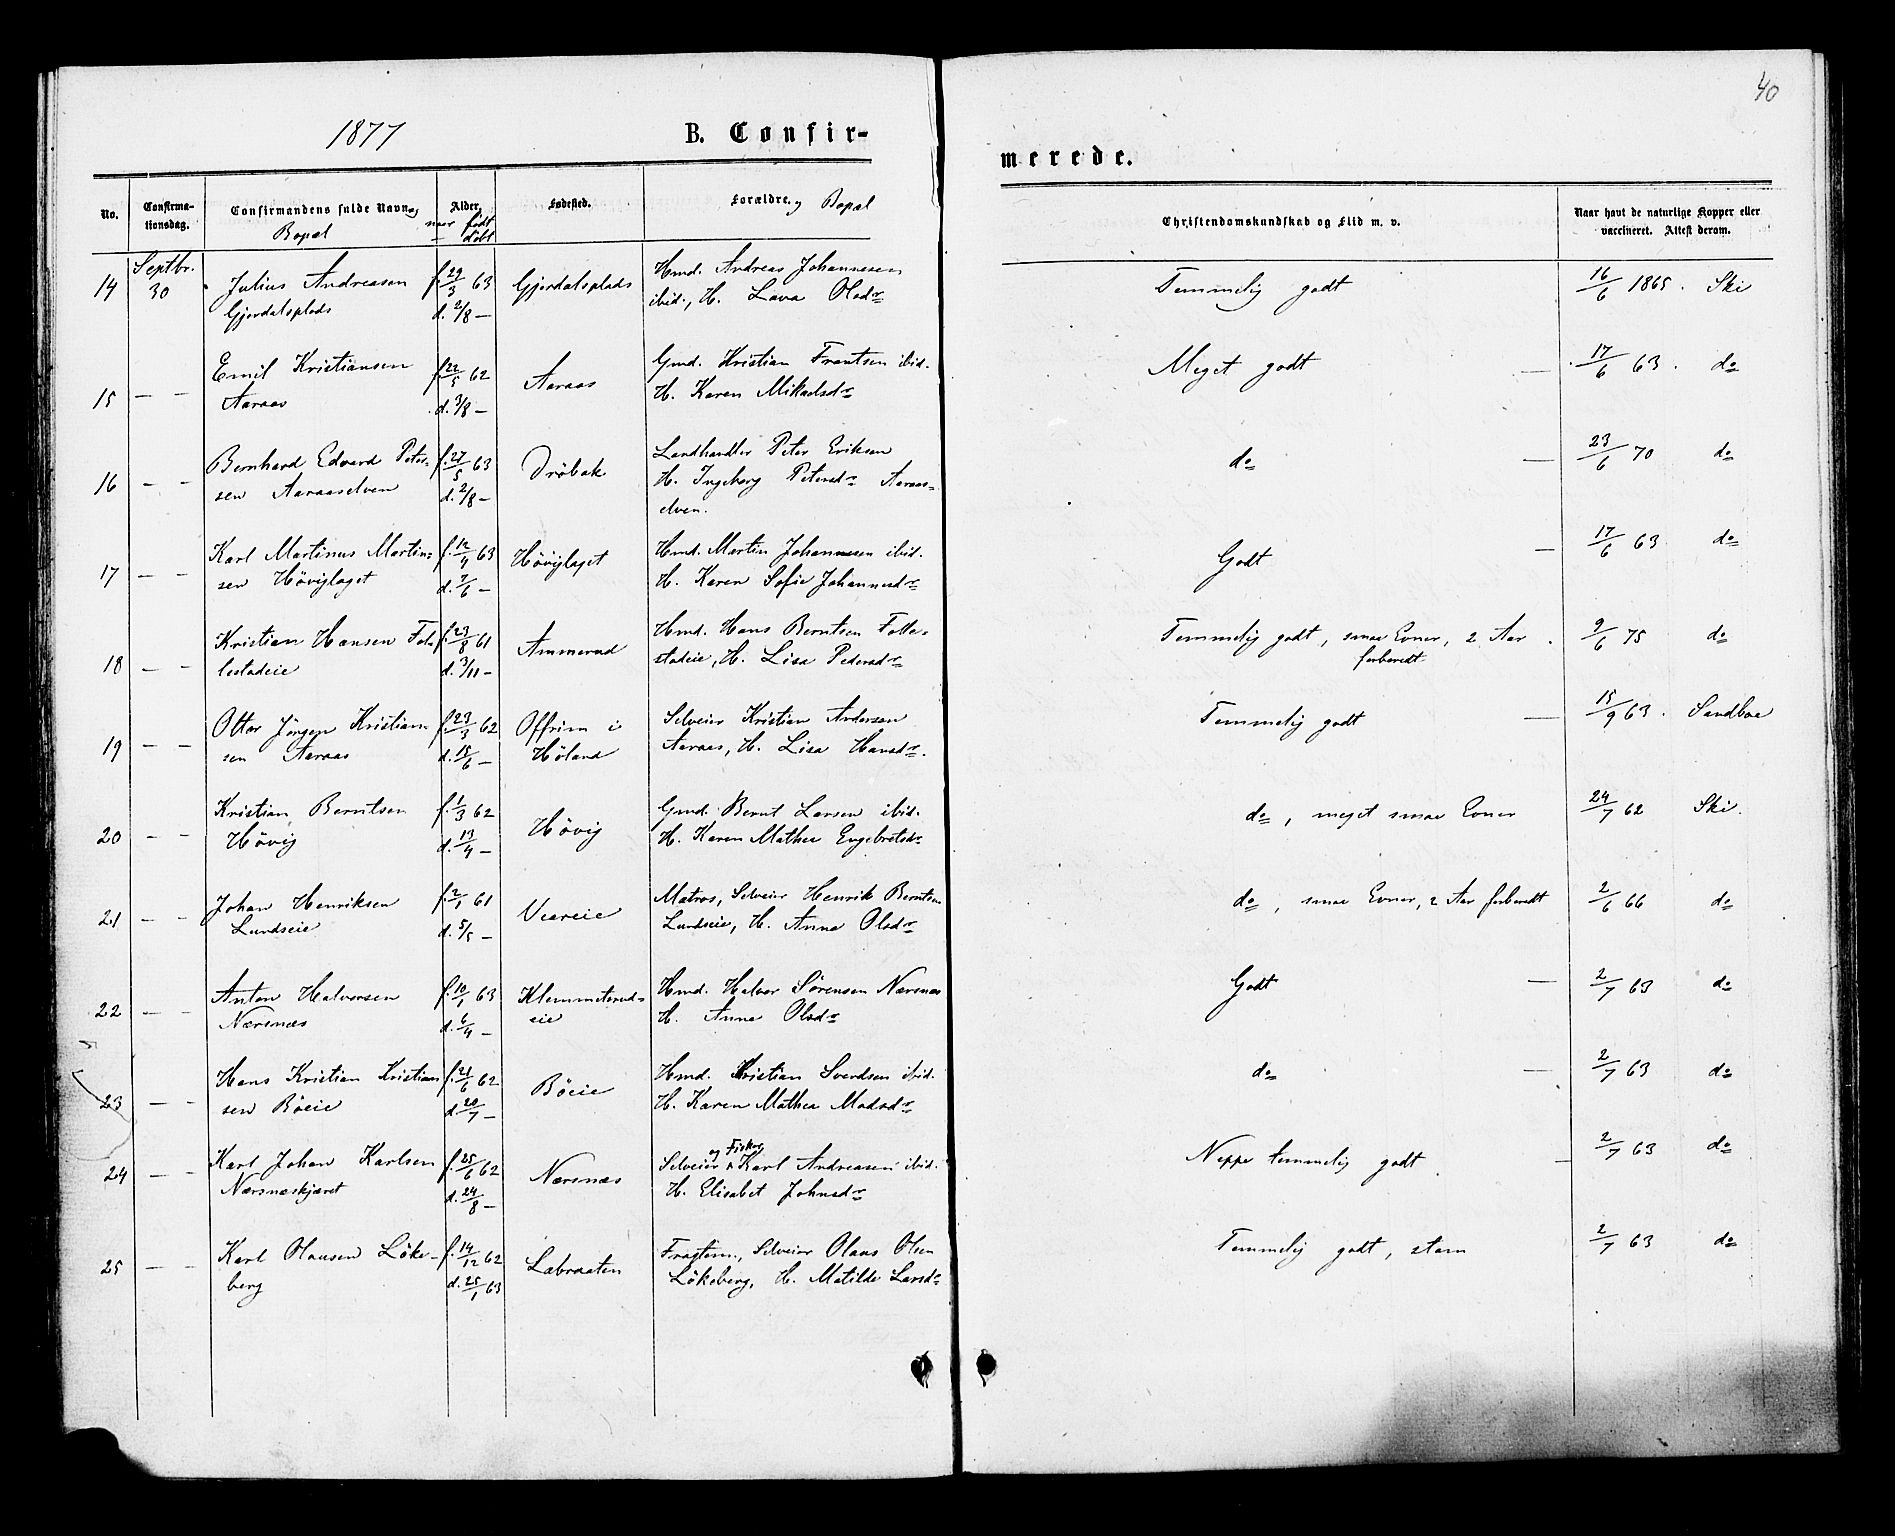 40
1877
B. Confir-
merede.
No.
Confirma-
tionsdag.
Confirmandens fulde Navn og
Bopæl
Alder,
naar født
døbt
Fødested.
Forældre. og Bopæl
Christendomskundskab og Flid m. v.
Naar havt de naturlige Kopper eller
vaccineret. Attest derom.
14 Septbr. 30 Julius Andreasen f. 29/3 63 Gjerdalsplads Hmd. Andreas Johannesen Temmelig godt 16/6 1865. Ski
Gjerdalsplads d. 2/8 — ibid., H. Lava Olsdr
15 — — Emil Kristiansen f. 22/5 62 Aaraas Gmd. Kristian Frantsen ibid. Meget godt — 17/6 63. do
Aaraas d. 3/8 — H. Karen Mikaelsdr
16 — — Bernhard Edvard Peter- f. 27/5 63 Drøbak Landhandler Peter Eriksen do — 23/6 70 do
sen Aaraaselven d. 2/8 — H. Ingeborg Petersdr Aaraas-
elven.
17 — — Karl Martinus Martin- f. 12/4 63 Høviglaget Hmd. Martin Johannesen ibid. Godt — 17/6 63 do
sen Høviglaget d. 7/6 — H. Karen Sofie Johannesdr
18 — — Kristian Hansen Fol- f. 23/8 61 Ammerud Hmd. Hans Berntsen Folle- Temmelig godt, smaa Evner, 2 Aar 9/6 75 do
lestadeie d. 3/11 — stadeie, H. Lisa Pedersdr forberedt
19 — — Ottar Jörgen Kristian- f. 23/3 62 Offrim i Selveier Kristian Andersen Temmelig godt — 15/9 63. Sandboe
sen Aaraas d. 15/6 — Høland Aaraas, H. Lisa Hansdr.
20 — — Kristian Berntsen f. 1/3 62 Høvig Gmd. Bernt Larsen ibid. do, meget smaa Evner 24/7 62 Ski.
Høvig d. 13/4 — H. Karen Mathea Engebretsdr
21 — — Johan Henriksen f. 2/1 61 Veareie Matros, Selveier Henrik Berntsen do, smaa Evner, 2 Aar forberedt 2/6 66 do
Lundseie d. 5/5 — Lundseie, H. Anne Olsdr
22 — — Anton Halvorsen f. 10/1 63 Klemmetsrud- Hmd. Halvor Sørensen Nærsnæs Godt — 2/7 63 do
Nærsnæs d. 6/4 — eie H. Anne Olsdr
23 — — Hans Kristian Kristian f. 21/6 62 Bøeie Hmd. Kristian Svendsen ibid. do — 2/7 63 do
sen Bøeie d. 20/7 — H. Karen Mathea Madsdr
24 — — Karl Johan Karlsen f. 25/6 62 Nærsnæs Selveier og Fisker Karl Andreasen ibid. Neppe temmelig godt — 2/7 63 do
Nærsnæskjæret d. 24/8 — H. Elisabet Johnsdr
25 — — Karl Olausen Løke- f. 14/12 62 Labraaten Fragtem., Selveier Olaus Olsen Temmelig godt, stam 2/7 63 do
berg d. 25/1 63 Løkeberg, H. Matilde Larsdr